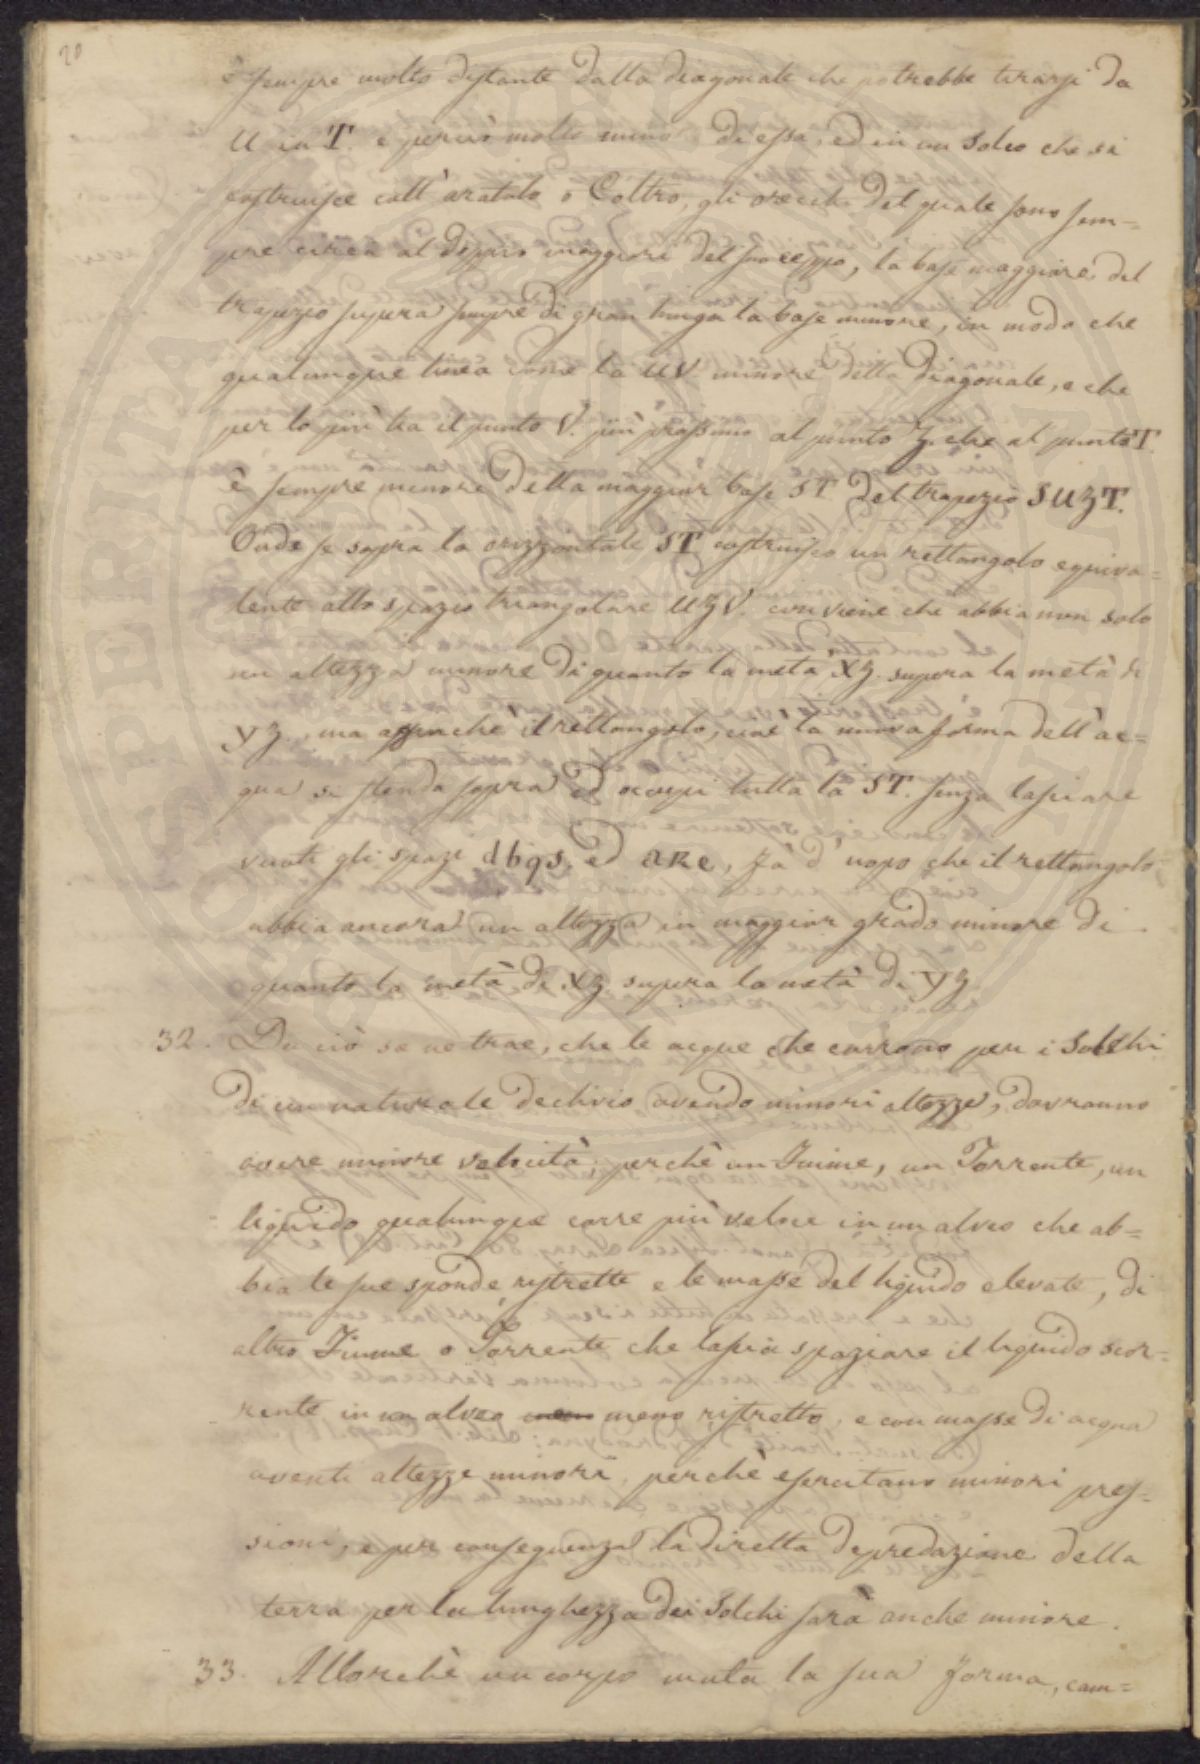 20
è sempre molto distante dalla diagonale che potrebbe tirarsi da
U in T. e perciò molto mino di essa, ed in un solco che si
costruisce coll' aratolo o Coltro, gli orecchi del quale sono sem=
pre circa al doppio maggiori del suo ceppo, la base maggiore del
trapezio supera sempre di gran lunga la base minore, in modo che
qualunque linea come la UV minore della diagonale, e che
per lo più ha il punto V. più prossimo al punto Z che al punto T.
è sempre minore della maggior base ST del trapezio SUZT.
Onde se sopra la orizzontale ST costruisco un rettangolo equiva=
lente allo spazio triangolare UZV. conviene che abbia non solo
un altezza minore di quanto la metà XZ. supera la metà di
YZ., ma affinchè il rettangolo, cioè la nuova forma dell' ac=
qua si stenda sopra ed occupi tutta la ST. senza lasciare
vuoti gli spazi dbqs, ed aRc, fà d' uopo che il rettangolo
abbia ancora un altezza in maggior grado minore di
quanto la metà di XZ supera la metà di YZ
32. Da ciò se ne trae, che le acque che corrono per i Solchi
di un naturale declivio avendo minori altezze, dovranno
avere minore velocità; perchè un Fiume, un Torrente, un
liquido qualunque corre più veloce in un alveo che ab=
bia le sue sponde ristrette e le masse del liquido elevate, di
altro Fiume o Torrente che lascia spaziare il liquido scor=
rente in un alveo meno ristretto, e con masse di acqua
aventi altezze minori, perchè esercitano minori pres=
sioni, e per conseguenza la diretta depredazione della
terra per la lunghezza dei Solchi sarà anche minore.
33. Allorchè un corpo muta la sua forma, cam=